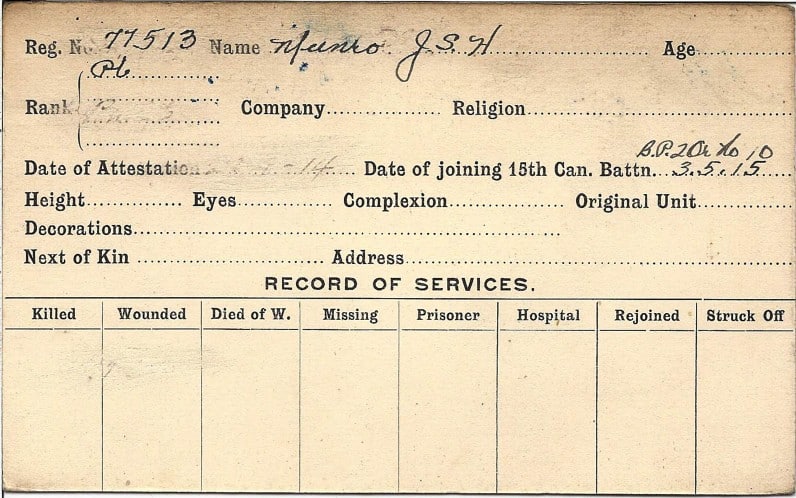 Reg. No. 77513 Name Munro J. S. H Age
Pte
Rank Company Religion
B.P. 2 Or No 10
Date of Attestation -14 Date of joining 15th Can. Battn. 3.5.15
Height Eyes Complexion Original Unit
Decorations
Next of Kin Address
RECORD OF SERVICES.
Killed Wounded Died of W. Missing Prisoner Hospital Rejoined Struck Off